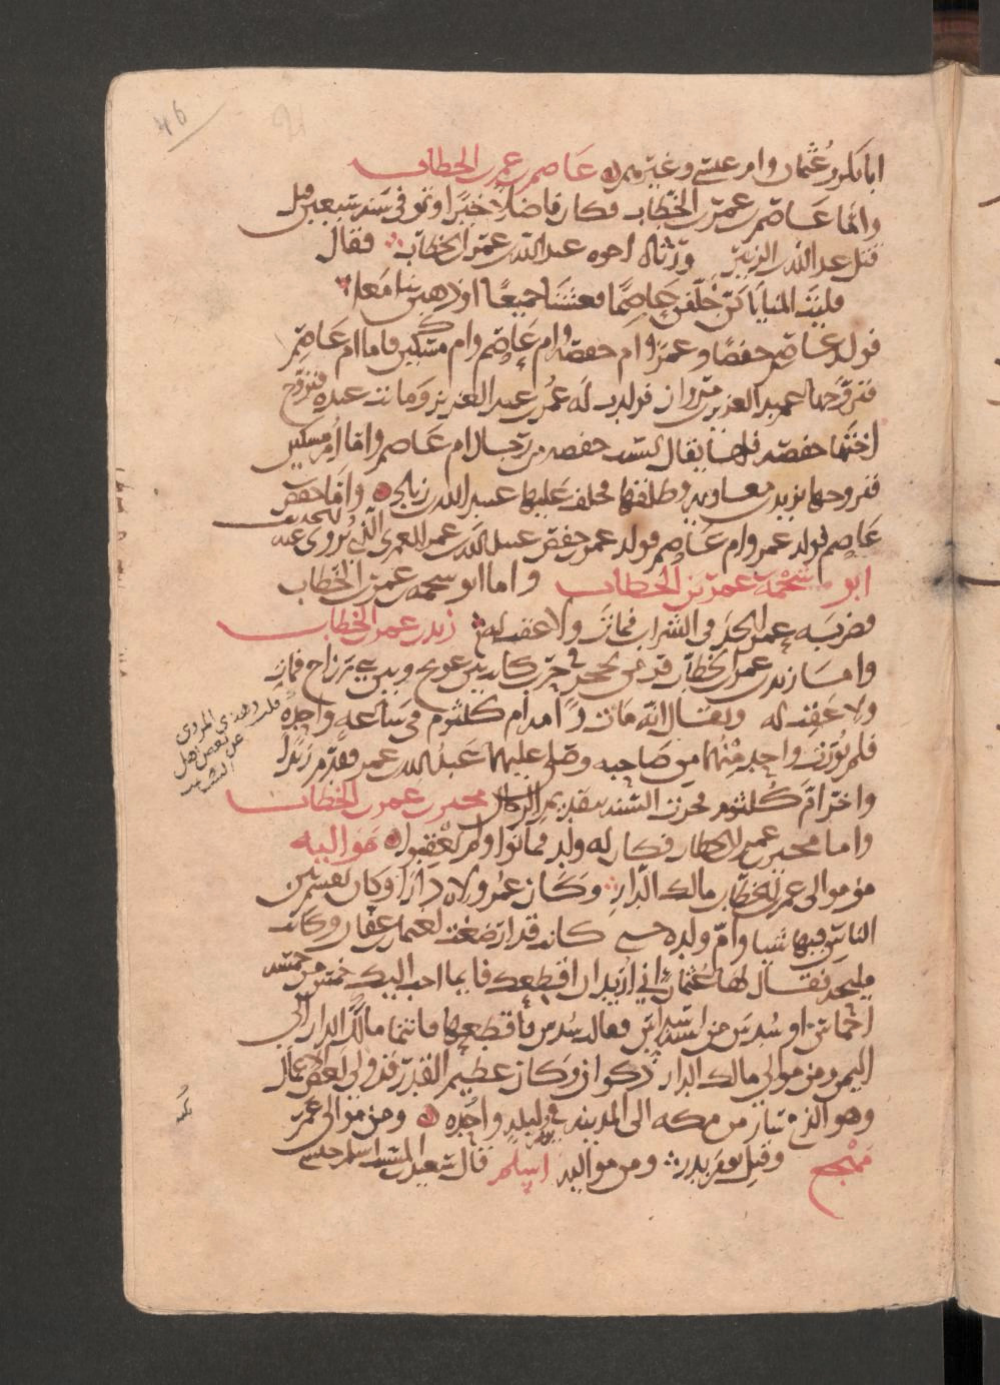 46
ابا بكر وعثمان وام عيسى وغيرهم عاصم بن عمر بن الخطاب
واما عاصم بن عمر بن الخطاب فكان فاضلا خيرا وتوفى سنة سبعين قبل
قتل عبد الله بن الزبير ورثاه اخوه عبد الله بن عمر بن الخطاب فقال
فليت المنايا كن خلفن عاصما فعشنا جميعا او ذهبن بنا معا
فولد عاصم حفصا وعمر وام حفصه وام عاصم وام مسكين فاما ام عاصم
فتزوجها عبد العزيز بن مروان فولدت له عمر بن عبد العزيز وماتت عنده فتزوج
اختها حفصه فلها يقال ليست حفصه من رجال ام عاصم واما ام مسكين
فتزوجها يزيد بن معاويه وطلقها فخلف عليها عبيد الله بن زياد واما حفص بن
عاصم فولد عمر وام عاصم فولد عمر بن حفص عبيد الله بن عمر العمرى الذى يروى عنه الحديث
ابو شحمة بن عمر بن الخطاب واما ابو شحمه بن عمر بن الخطاب
فضربه عمر الحد فى الشراب فمات ولا عقب له زيد بن عمر بن الخطاب
واما زيد بن عمر بن الخطاب فرمى بحجر فى حرب كانت بين عويج وبين بنى رزاح فمات
ولا عقب له ويقال انه مات هو وامه ام كلثوم فى ساعة واحدة
فلم يورث واحد منهما من صاحبه وصلى عليهما عبد الله بن عمر فقدم زيدا
واخر ام كلثوم فجرت السنة بتقديم الرجال مجبر بن عمر بن الخطاب
واما مجبر بن عمر بن الخطاب فكان له ولد فماتوا ولم يعقبوا مواليه
من موالى عمر بن الخطاب مالك الدار وكان عمر ولاه دارا وكان يقسم بين
الناس فيها شيا وام ولده كانت قد ارضعت لعثمان بن عفان وكانت
فقال لها عثمان انى اريد ان اقطعك فايما احب اليك خمس من خمسه
اخماس او سدس من اسداس فقال سدس فاقطعها فانتما مالك الدار الى
اليمن ومن موالى مالك الدار ذكوان وكان عظيم القدر قد ولى بعض الاعمال
وهو الذى سار من مكه الى المدينه فى ليلة واحدة ومن موالى عمر
مهجع وقتل يوم بدر ومن مواليه اسلم قال سعيد بن المسيب اسلم حبشى
قلت وهذى المروى
عن بعض اهل